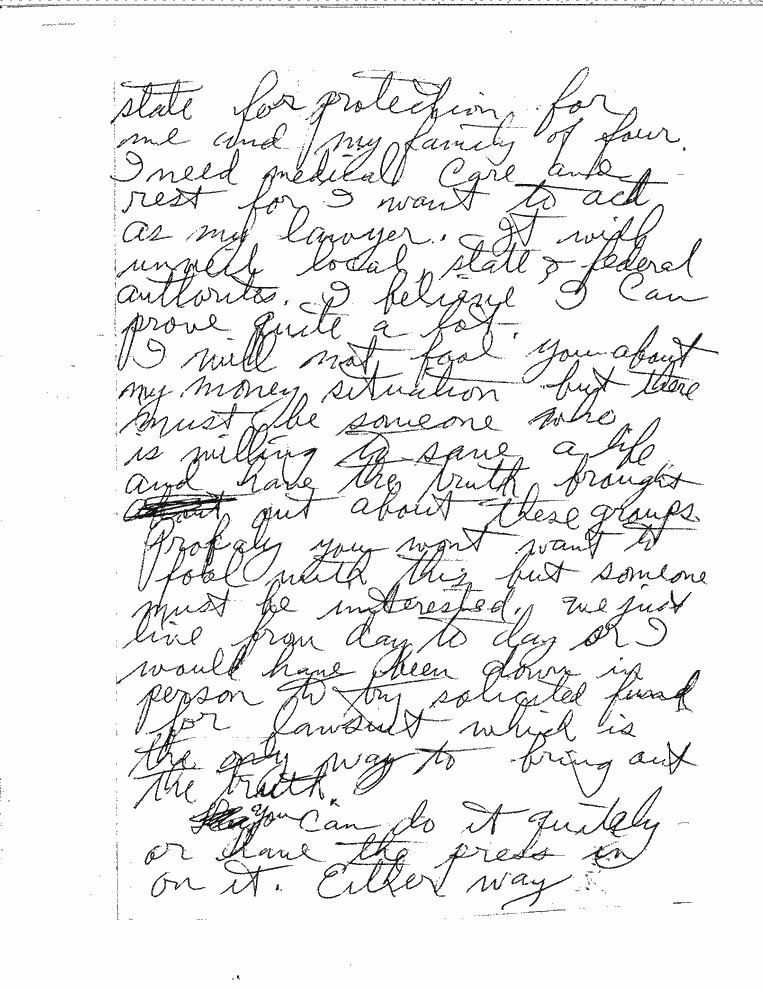 state for protection for
me and my family of four.
I need medical care and
rest for I want to act
as my lawyer. It will
unveil local, state & federal
authorites. I believe I can
prove quite a lot.
I will not fool you about
my money situation but there
must be someone who
is willing to save a life
and have the truth brought
out about these groups
Propaly you wont want to
fool with this but someone
must be interested. we just
live from day to day or I
would have been down in
person to try solicited fund
for lawsuit which is
the only way to bring out
the truth.
you can do it quitely
or have the press in
on it. Either way